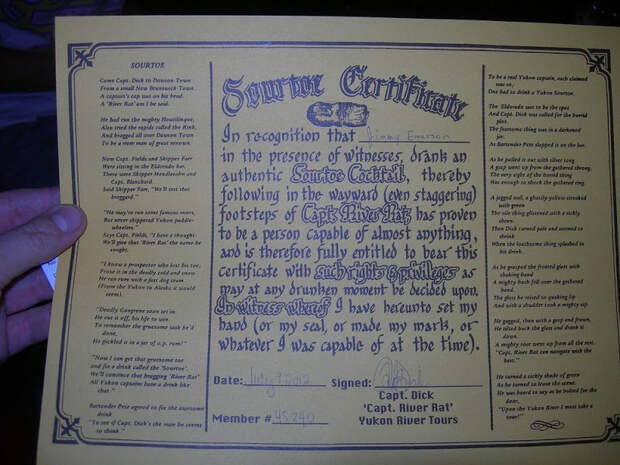 SOURTOE
Came Capt. Dick to Dawson Town
From a small New Brunswick Town.
A captain's cap was on his head.
A 'River Rat' am I he said.
He had run the mighty Hootilinqua,
Also tried the rapids called the Rink,
And bragged all over Dawson Town
To be a river man of great renown.
Now Capt. Fields and Skipper Farr
Were sitting in the Eldorado bar.
There were Skipper Mendlesohn and
Capt. Blanchard
Said Skipper Farr, "We'll test that
braggard."
"He may've run some famous rivers,
But never skippered Yukon paddle-
wheelers."
Says Capt. Fields, "I have a thought.
We'll give that 'River Rat' the name he
sought.
"I know a prospector who lost his toe.
Froze it in the deadly cold and snow.
He ran rum with a fast dog team.
(From the Yukon to Alaska it would
seem).
"Deadly Gangrene soon set in.
He cut it off, his life to win.
To remember the gruesome task he'd
done,
He pickled it in a jar of o.p. rum!"
"Now I can get that gruesome toe
and fix a drink called the 'Sourtoe'.
We'll convince that bragging 'River Rat'
All Yukon captains have a drink like
that."
Bartender Pete agreed to fix the awesome
drink
"To see if Capt. Dick's the man he seems
to think."
Sourtoe Certificate
In recognition that Jimmy Emerson
in the presence of witnesses, drank an
authentic Sourtoe Cocktail, thereby
following in the wayward (even staggering)
footsteps of Capt. River Rat, has proven
to be a person capable of almost anything,
and is therefore fully entitled to bear this
certificate with such rights & privileges as
may at any drunken moment be decided upon.
In witness whereof I have hereunto set my
hand (or my seal, or made my mark, or
whatever I was capable of at the time).
Date: July 9 2012 Signed:
Capt. Dick
'Capt. River Rat'
Member # 45,240 Yukon River Tours
To be a real Yukon captain, each claimed
was so,
One had to drink a Yukon Sourtoe.
The Eldorado was to be the spot
And Capt. Dick was called for the buried
plot.
The fearsome thing was in a darkened
jar.
As Bartender Pete slapped it on the bar.
As he pulled it out with silver tong
A gasp went up from the gathered throng.
The very sight of the buried thing
Was enough to shock the gathered ring.
A jagged nail, a ghastly yellow streaked
with green
The toe thing glistened with a sickly
sheen.
Then Dick turned pale and seemed to
shrink
When the loathsome thing splashed in
his drink.
As he grasped the frosted glass with
shaking hand
A mighty hush fell over the gathered
band.
The glass he raised to quaking lip
And with a shudder took a mighty sip.
He gagged, then with a gasp and frown,
He tilted back the glass and drank it
down.
A mighty roar went up from all the rest.
"Capt. River Rat can navigate with the
best."
He turned a sickly shade of green
As he turned to leave the scene.
He was heard to say as he bolted for the
door,
"Upon the Yukon River I must take a
tour!"